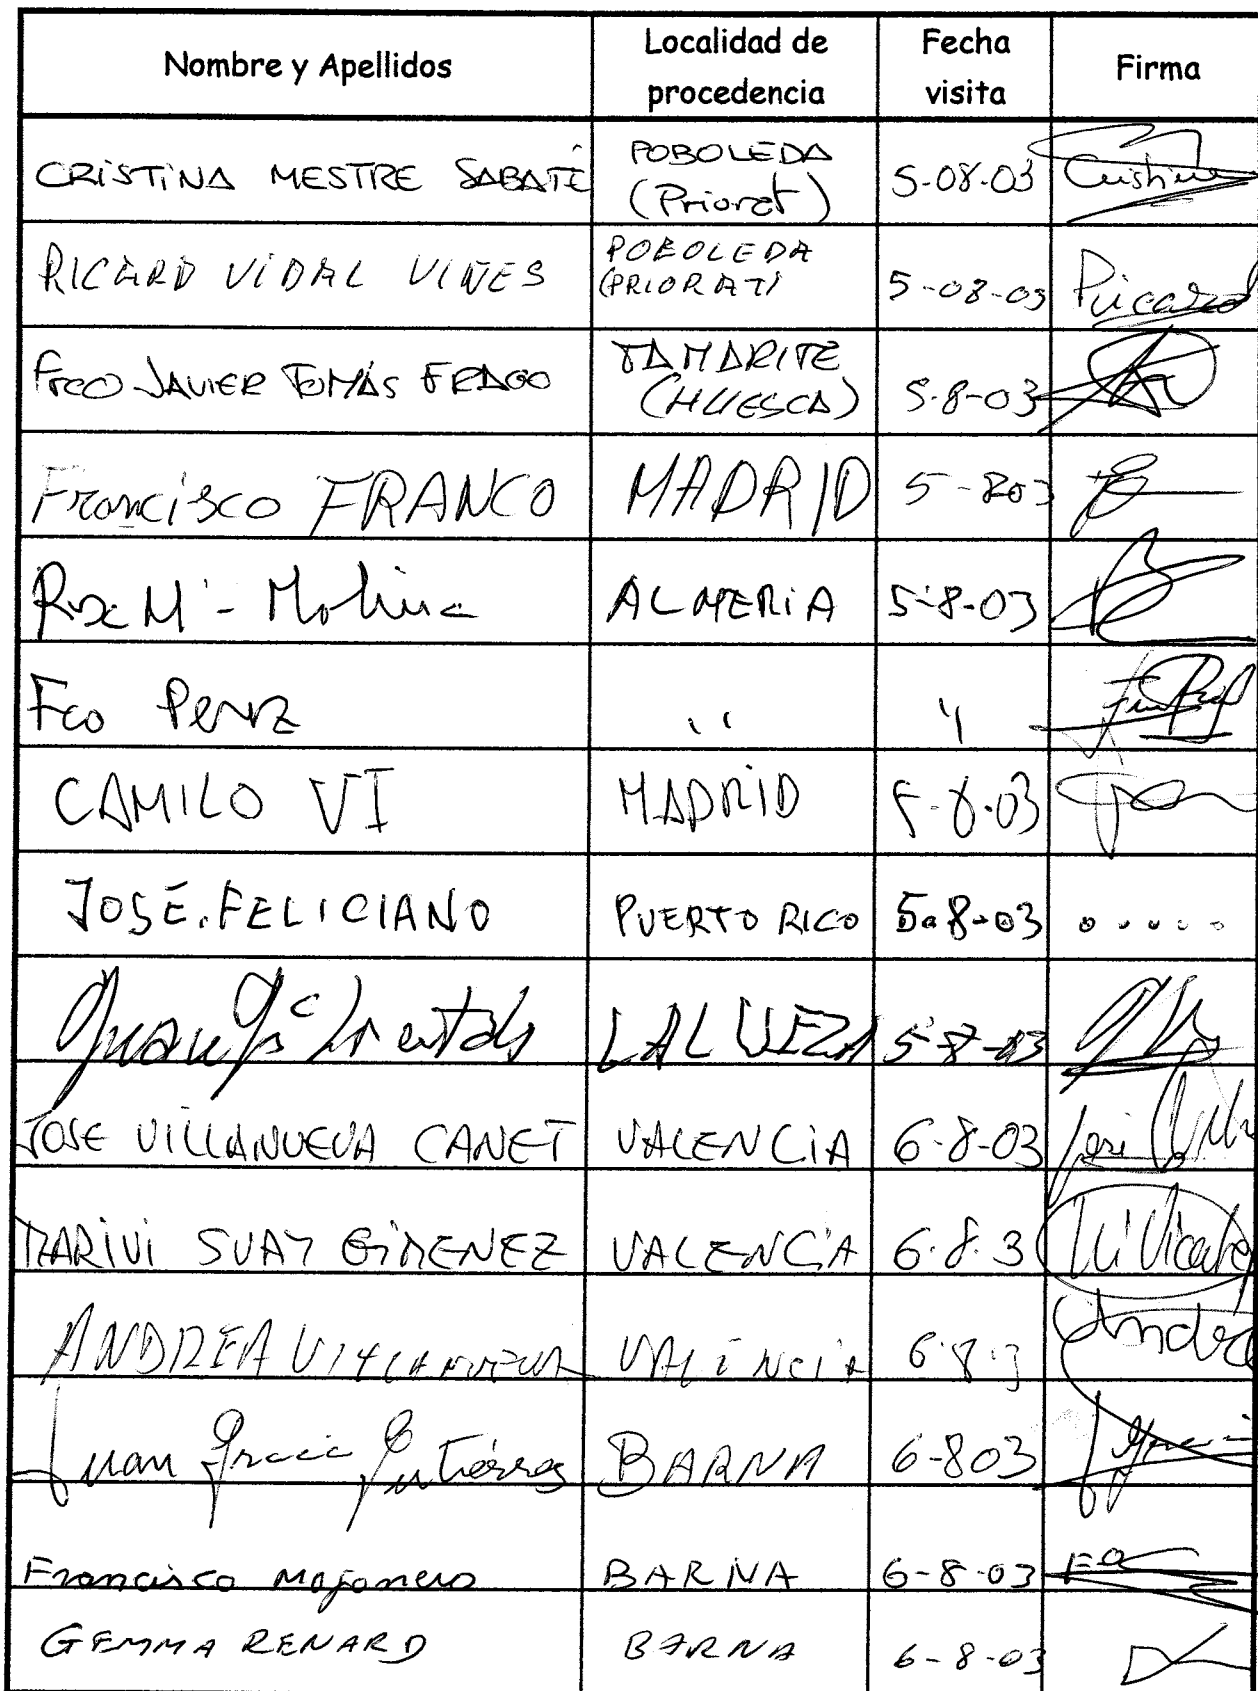 Nombre y Apellidos Localidad de procedencia Fecha visita Firma
CRISTINA MESTRE SABATÉ POBOLEDA (Priorat) 5-08-03 Cristina
RICARD VIDAL VIÑES POBOLEDA (PRIORAT) 5-08-03 Ricard
Fco JAVIER TOMÁS FRAGO TAMARITE (HUESCA) 5-8-03
Francisco FRANCO MADRID 5-803
Rosa Mª - Molina ALMERIA 5-8-03
Fco Perez " "
CAMILO VI MADRID 5-8-03
JOSÉ. FELICIANO PUERTO RICO 5-8-03 .....
Juan LALUEZA 5-8-03
JOSE VILLANUEVA CANET VALENCIA 6-8-03
MARIVI SUAY GIMENEZ VALENCIA 6.8.3
ANDREA VILLANUEVA VALENCIA 6.8.3 Andrea
Juan Gracia Gutiérrez BARNA 6-803
Francisco Majonero BARNA 6-8-03
GEMMA RENARD BARNA 6-8-03